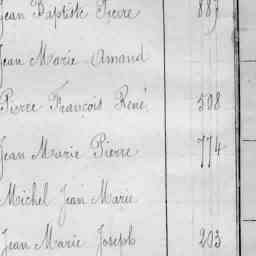 Jean Baptiste Pierre 887
Jean Marie Amand
Pierre François René 508
Jean Marie Pierre 774
Michel Jean Marie
Jean Marie Joseph 203